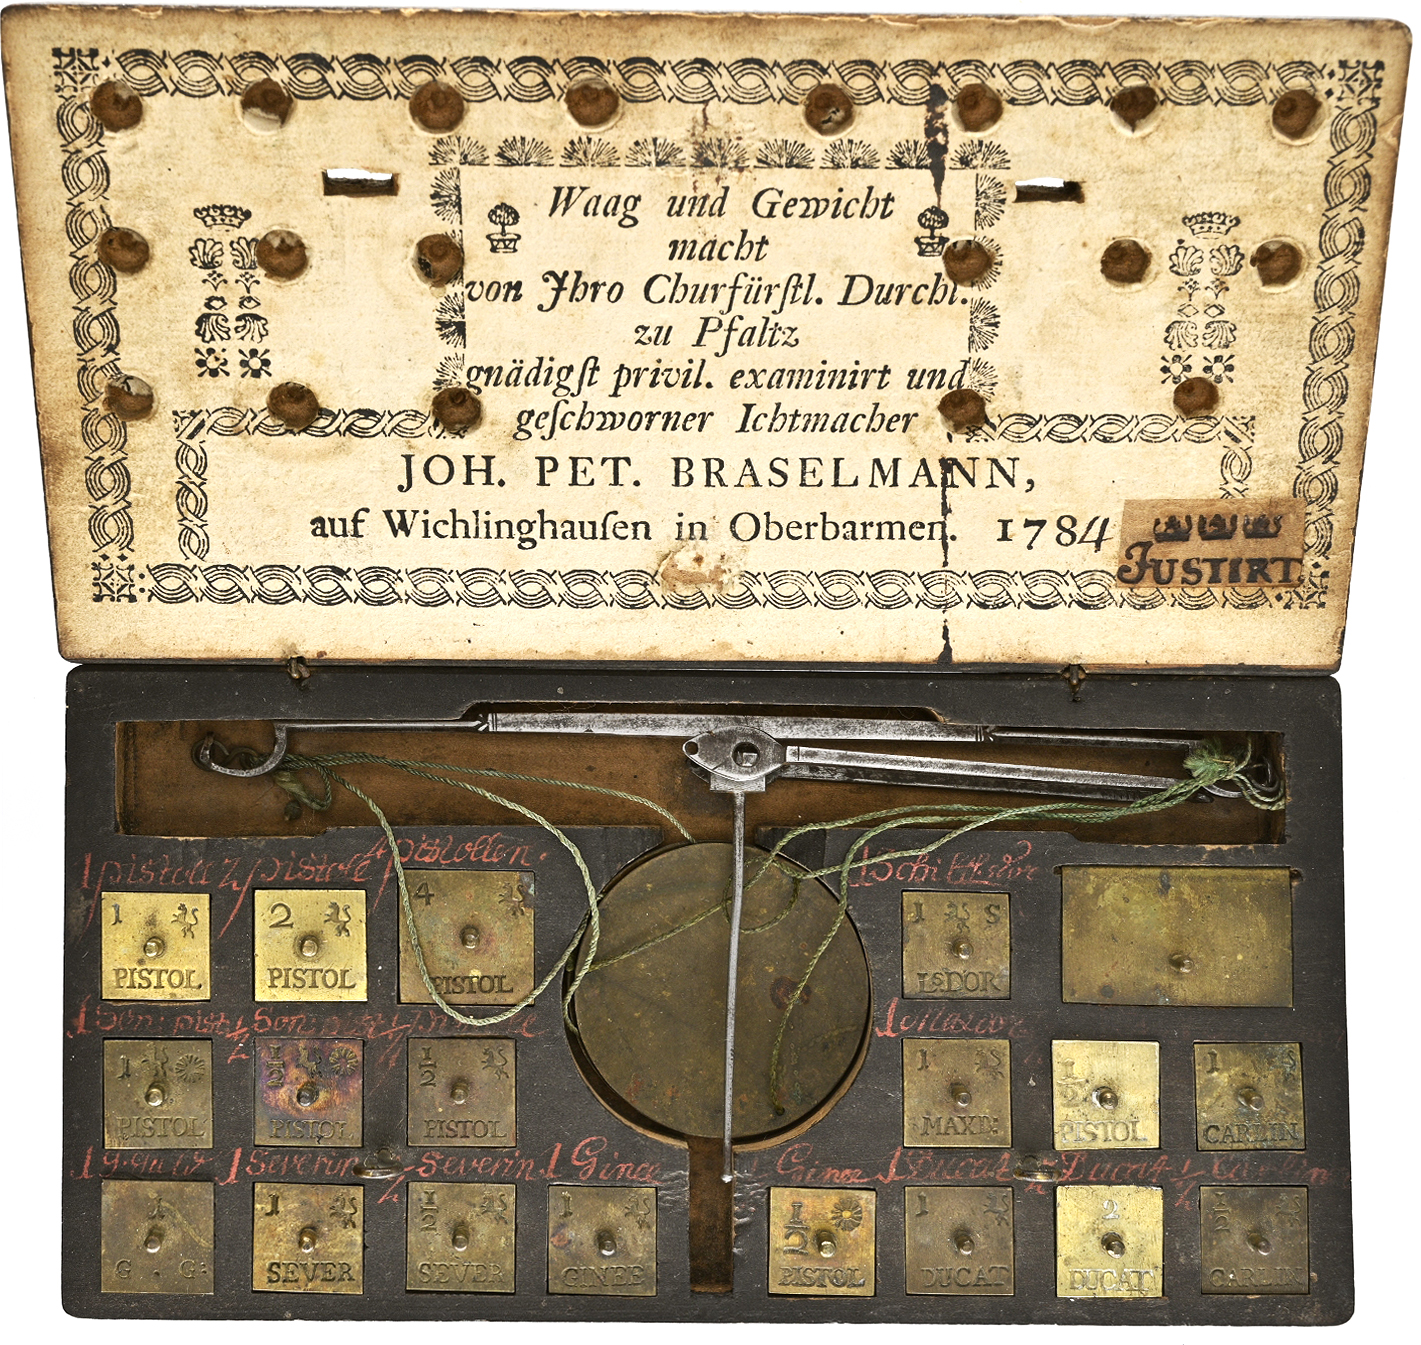 Waag und Gewicht
macht
von Jhro Churfürſtl. Durchl.
zu Pfaltz
gnädigſt privil. examinirt und
geſchworner Ichtmacher
JOH. PET. BRASELMANN,
auf Wichlinghauſen in Oberbarmen. 1784
JUSTIRT
1 pistole 2 pistole 4 pistollen.
1 PISTOL
2 PISTOL
4 PISTOL
1 S
L⁰DOR
1 Son: pist ½ Son: pist ½
1 PISTOL
½ PISTOL
½ PISTOL
1 MAXD:
½ PISTOL
1 CARLIN
1 1 Severin ½ Severin 1 Ginee Ginee 1 Ducat Ducat ½ Carlin
1 G. G:
1 SEVER
½ SEVER
1 GINEE
½ PISTOL
1 DUCAT
2 DUCAT
½ CARLIN